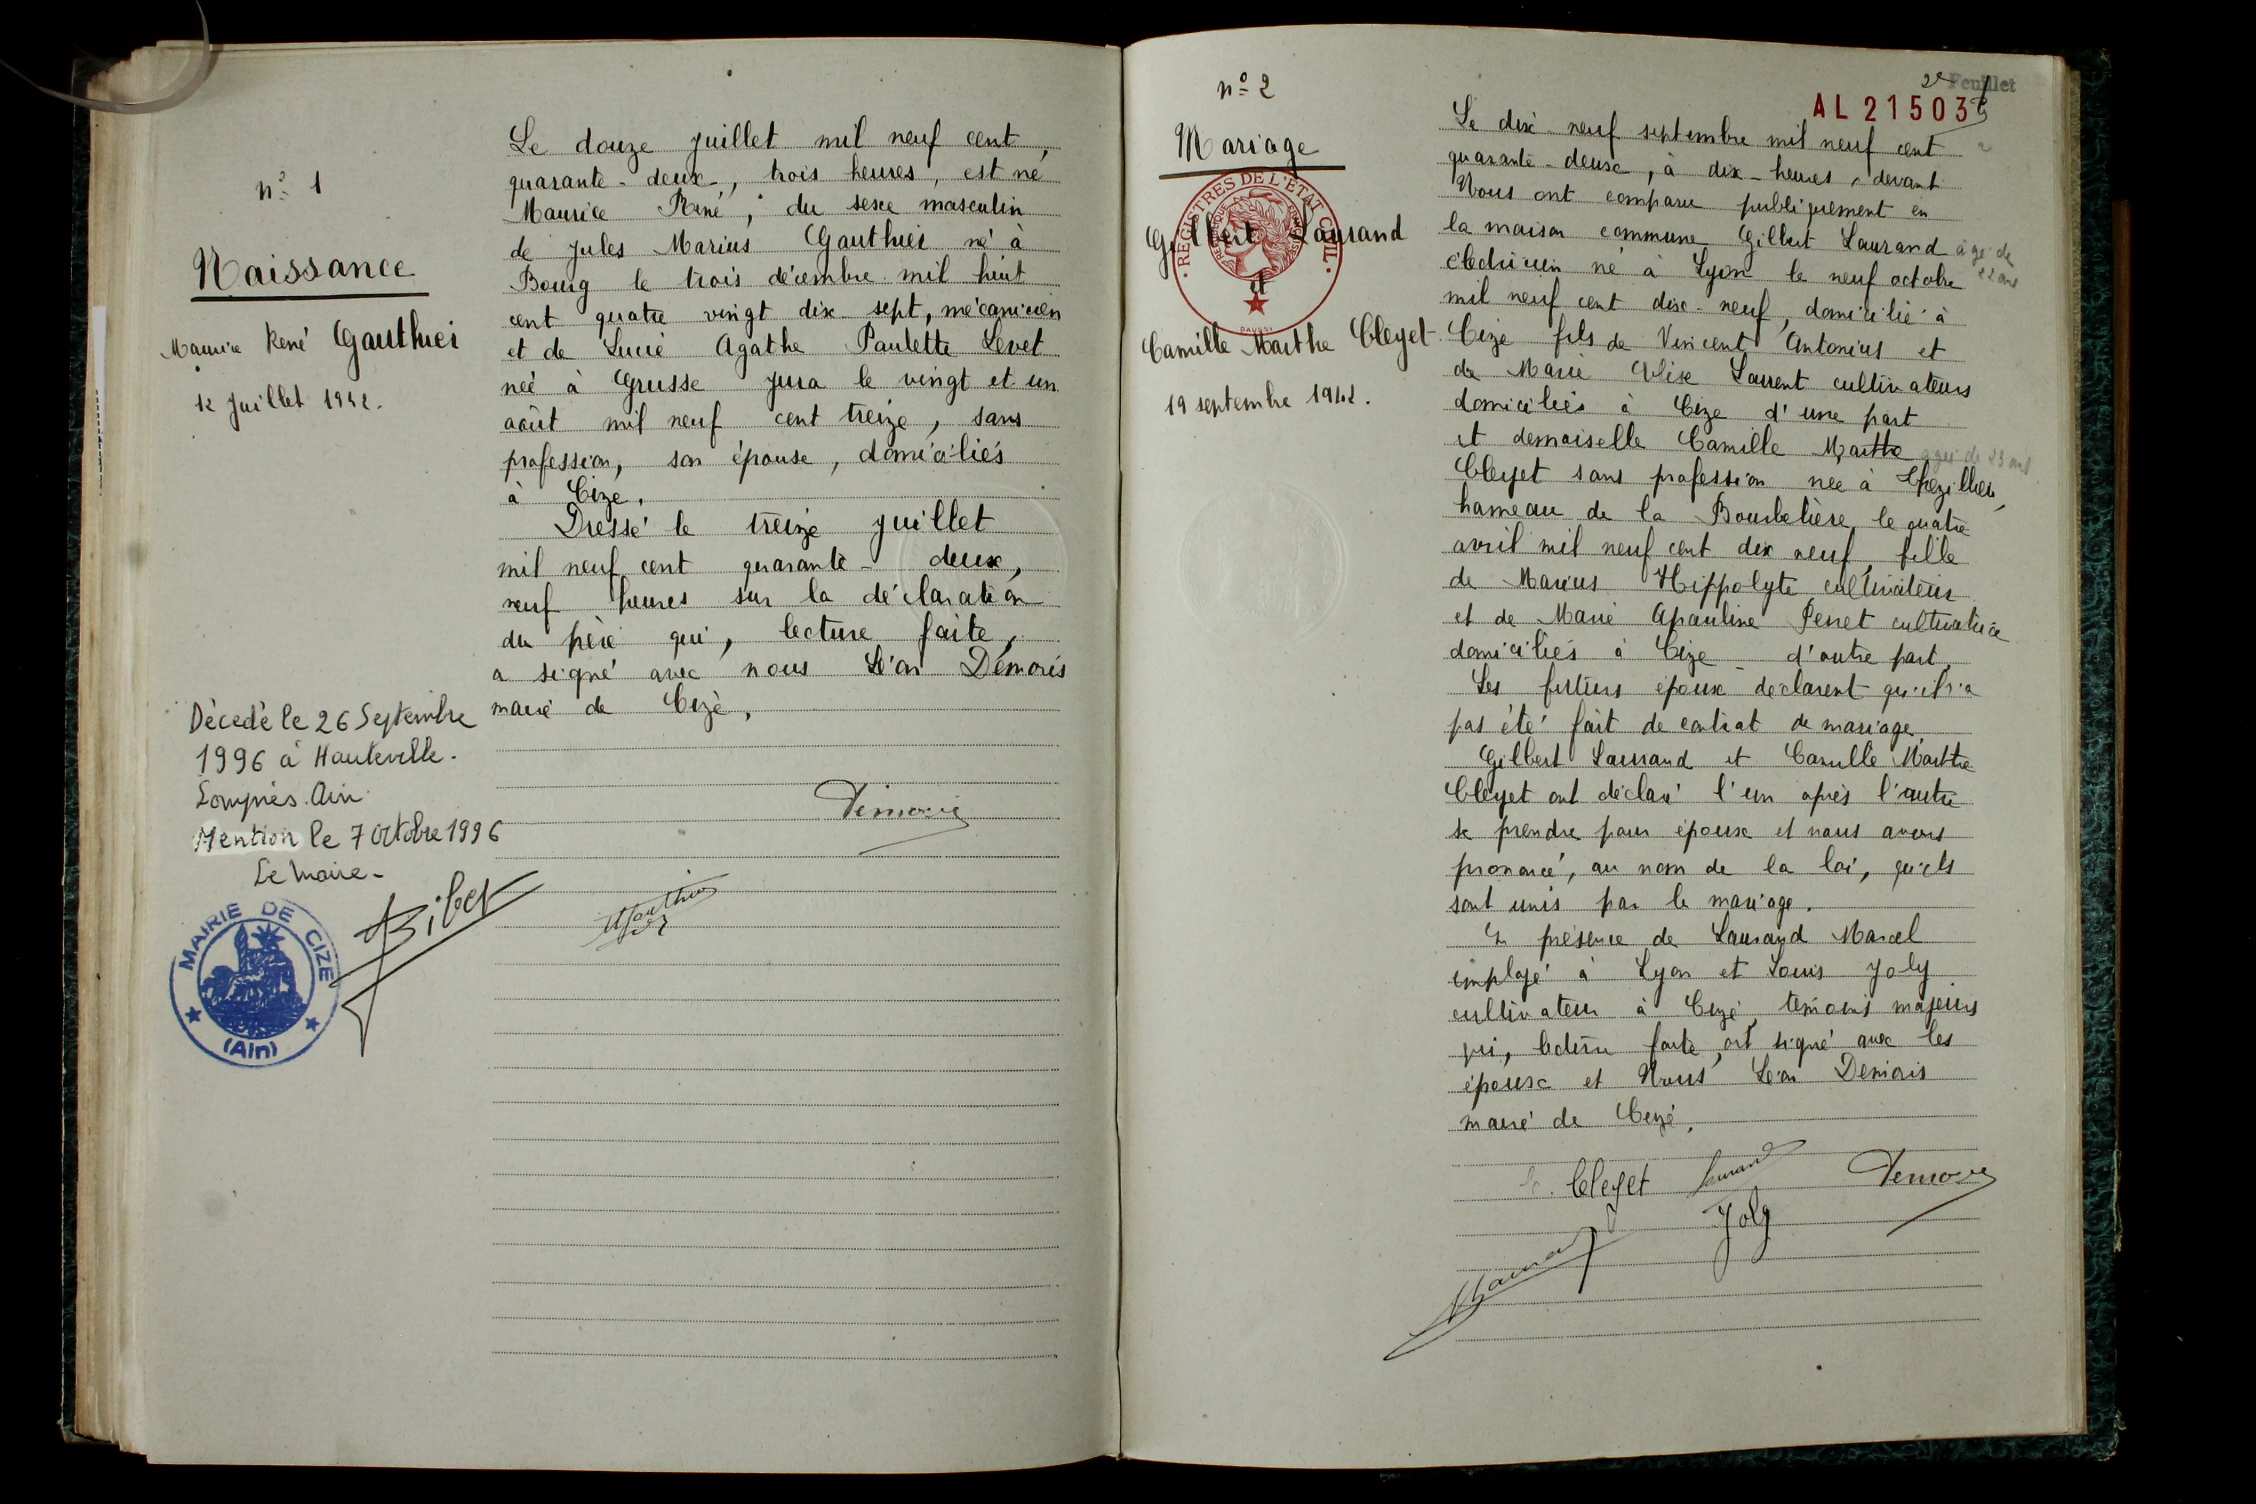 nº 1
Naissance
Maurice René Gauthier
12 Juillet 1942.
Le douze juillet mil neuf cent
quarante-deux, trois heures, est né
Maurice René, du sexe masculin
de Jules Marius Gauthier né à
Bourg le trois décembre mil huit
cent quatre vingt dix sept, mécanicien
et de Lucie Agathe Paulette Levet
née à Grusse Jura le vingt et un
août mil neuf cent treize, sans
profession, son épouse, domiciliés
à Cize.
Dressé le treize juillet
mil neuf cent quarante-deux,
neuf heures sur la déclaration
du père qui, lecture faite,
a signé avec nous Léon Démoris
maire de Cize.
Décedé le 26 Septembre
1996 à Hauteville.
Lompnès. Ain
Mention le 7 Octobre 1996
Le Maire-
MAIRIE DE CIZE
(Ain)
nº 2
Mariage
REGISTRES DE L'ETAT CIVIL
Gilbert Laurand
et
Camille Marthe Cleyet
19 septembre 1942.
2e Feuillet
AL 21503
Le dix-neuf septembre mil neuf cent
quarante-deux, à dix-heures, devant
Nous ont comparu publiquement en
la maison commune Gilbert Laurand âgé de 22 ans
électricien né à Lyon le neuf octobre
mil neuf cent dix-neuf, domicilié à
Cize fils de Vincent Antonius et
de Marie Elise Laurent cultivateurs
domiciliés à Cize d'une part
et demoiselle Camille Marthe agée de 23 ans
Cleyet sans profession née à
hameau de la Bourbelière, le quatre
avril mil neuf cent dix neuf, fille
de Marius Hippolyte cultivateur
et de Marie Apauline Perret cultivatrice
domiciliés à Cize - d'autre part.
Les futurs époux déclarent qu'il n'a
pas été fait de contrat de mariage.
Gilbert Laurand et Camille Marthe
Cleyet ont déclaré l'un après l'autre
se prendre pour époux et nous avons
prononcé, au nom de la loi, qu'ils
sont unis par le mariage.
En présence de Laurand Marcel
employé à Lyon et Louis Joly
cultivateur à Cize, témoins majeurs
qui, lecture faite, ont signé avec les
époux et Nous Léon Demoris
maire de Cize.
Cleyet Laurand Demoris
Joly